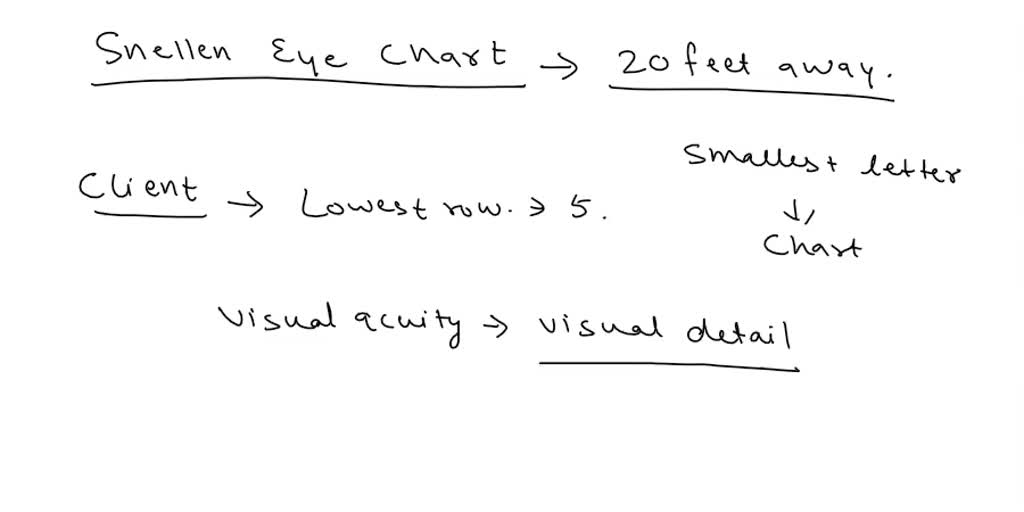 Snellen Eye Chart → 20 feet away.
Smallest letter
↓
Chart
Client → Lowest row. → 5.
Visual acuity → visual detail